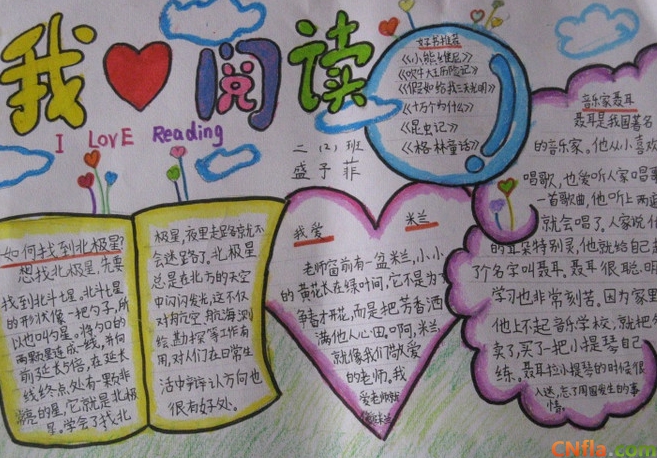 我 阅读
I LOVE Reading
二（2）班
盛子菲
好书推荐
《小熊维尼》
《吹牛大王历险记》
《假如给我三天光明》
《十万个为什么》
《昆虫记》
《格林童话》
如何找到北极星?
想找北极星,先要
找到北斗七星。北斗七星
的形状像一把勺子,所
以也叫勺星。将勺口的
两颗星连成一线,并向
前延长5倍,在延长
线终点处有一颗非
的星,它就是北极
星。学会了找北
极星,夜里走路就不
会迷路了。北极星
总是在北方的天空
中闪闪发光,这不仅
对航空、航海、测
绘、勘探等工作有
用,对人们在日常生
活中辨认方向也
很有好处。
我爱 米兰
老师窗前有一盆米兰,小小
的黄花长在绿叶间,它不是为了
争春才开花,而是把芳香洒
满他人心田。啊,米兰,
就像我们敬爱
的老师。我
爱老师
音乐家聂耳
聂耳是我国著名
的音乐家。他从小喜欢
唱歌,也爱听人家唱歌
一首歌曲,他听上两遍
就会唱了。人家说他
的耳朵特别灵,他就给自己起
了个名字叫聂耳。聂耳很聪明
学习也非常刻苦。因为家里
他上不起音乐学校,就把
卖了,买了一把小提琴自己
练。聂耳拉小提琴的时候很
入迷,忘了周围发生的事
情。
CNfla.com